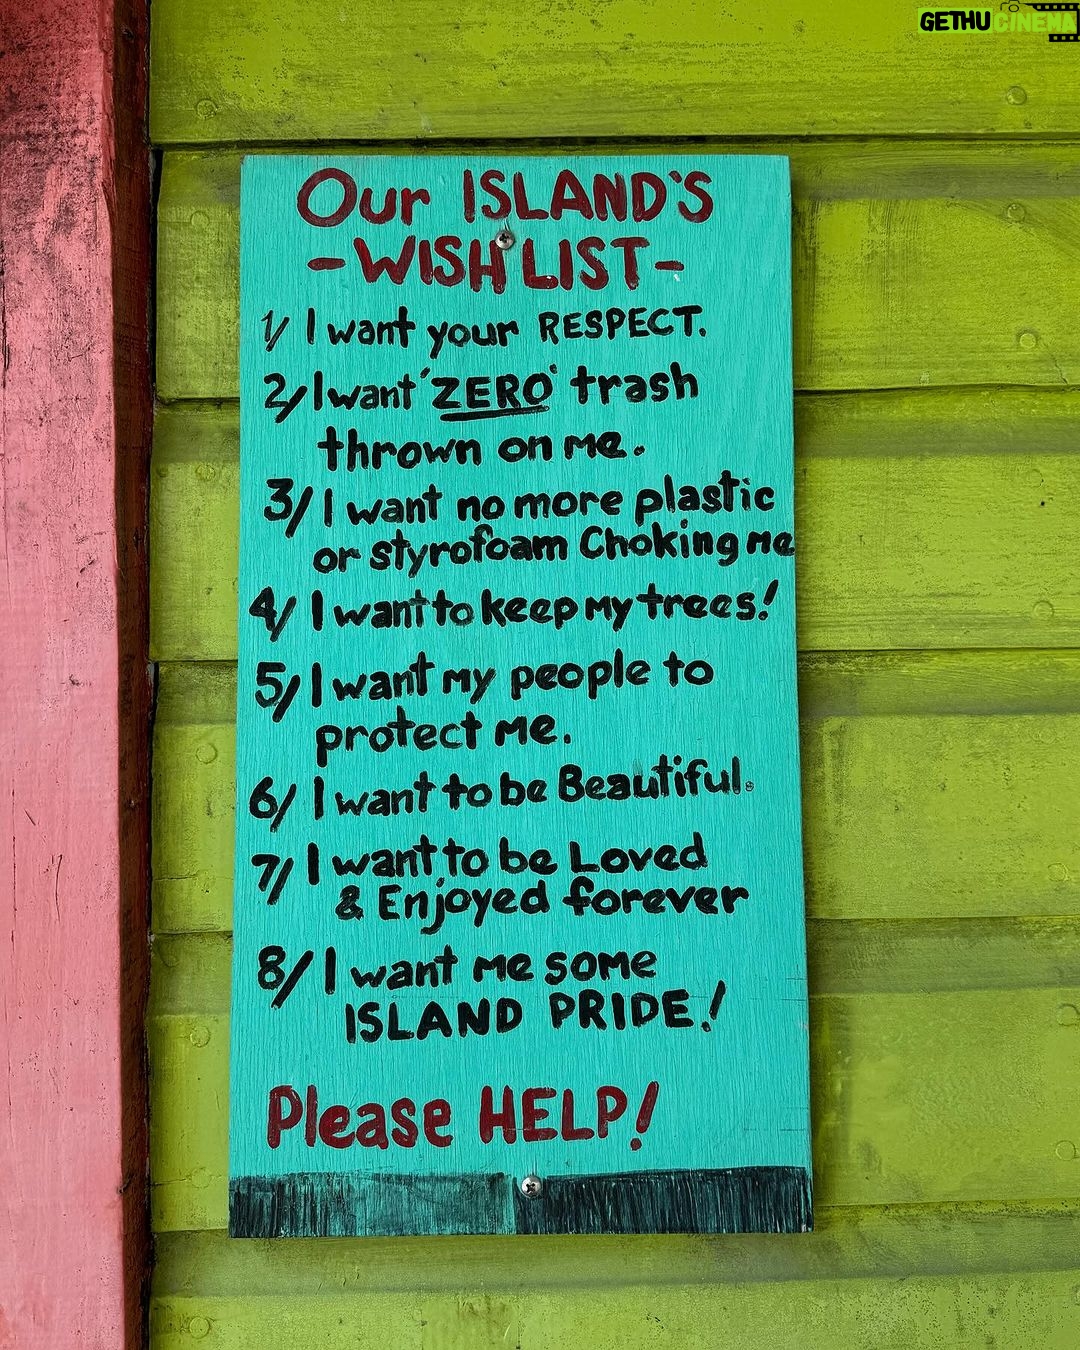 GETHUCINEMA
Our ISLAND'S
-WISH LIST-
1/ I want your RESPECT.
2/ I want 'ZERO' trash
thrown on me.
3/ I want no more plastic
or styrofoam Choking me
4/ I want to keep my trees!
5/ I want my people to
protect me.
6/ I want to be Beautiful.
7/ I want to be Loved
& Enjoyed forever
8/ I want me some
ISLAND PRIDE!
Please HELP!